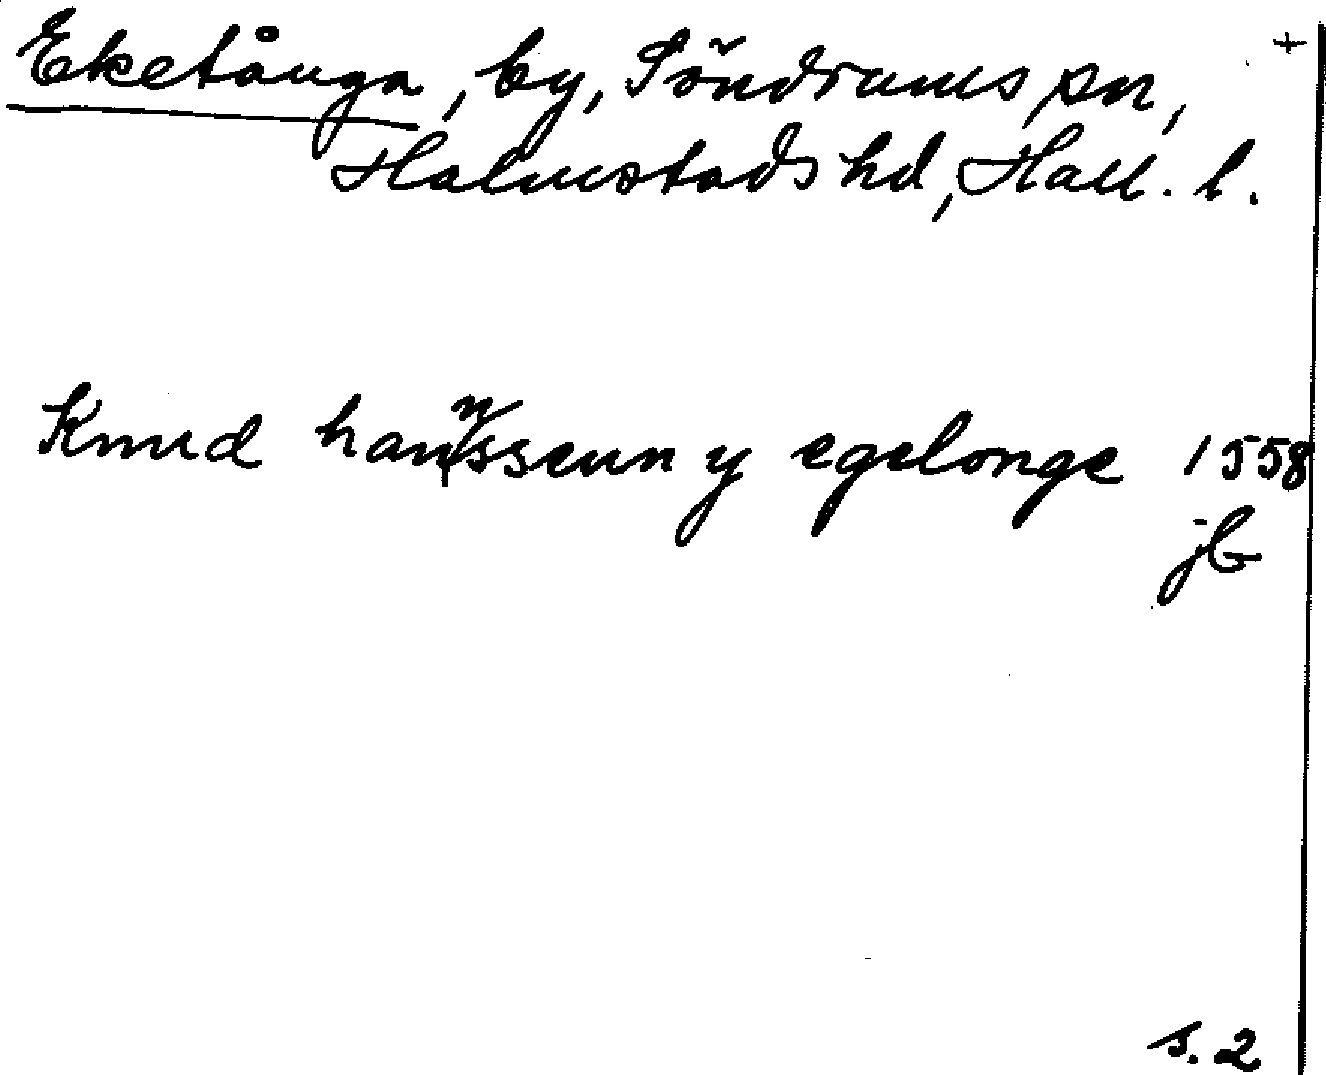 Eketånga, by, Söndrums sn, +
Halmstads hd, Hall. l.
Knud hannssenn y egelonge 1558
jb
s. 2